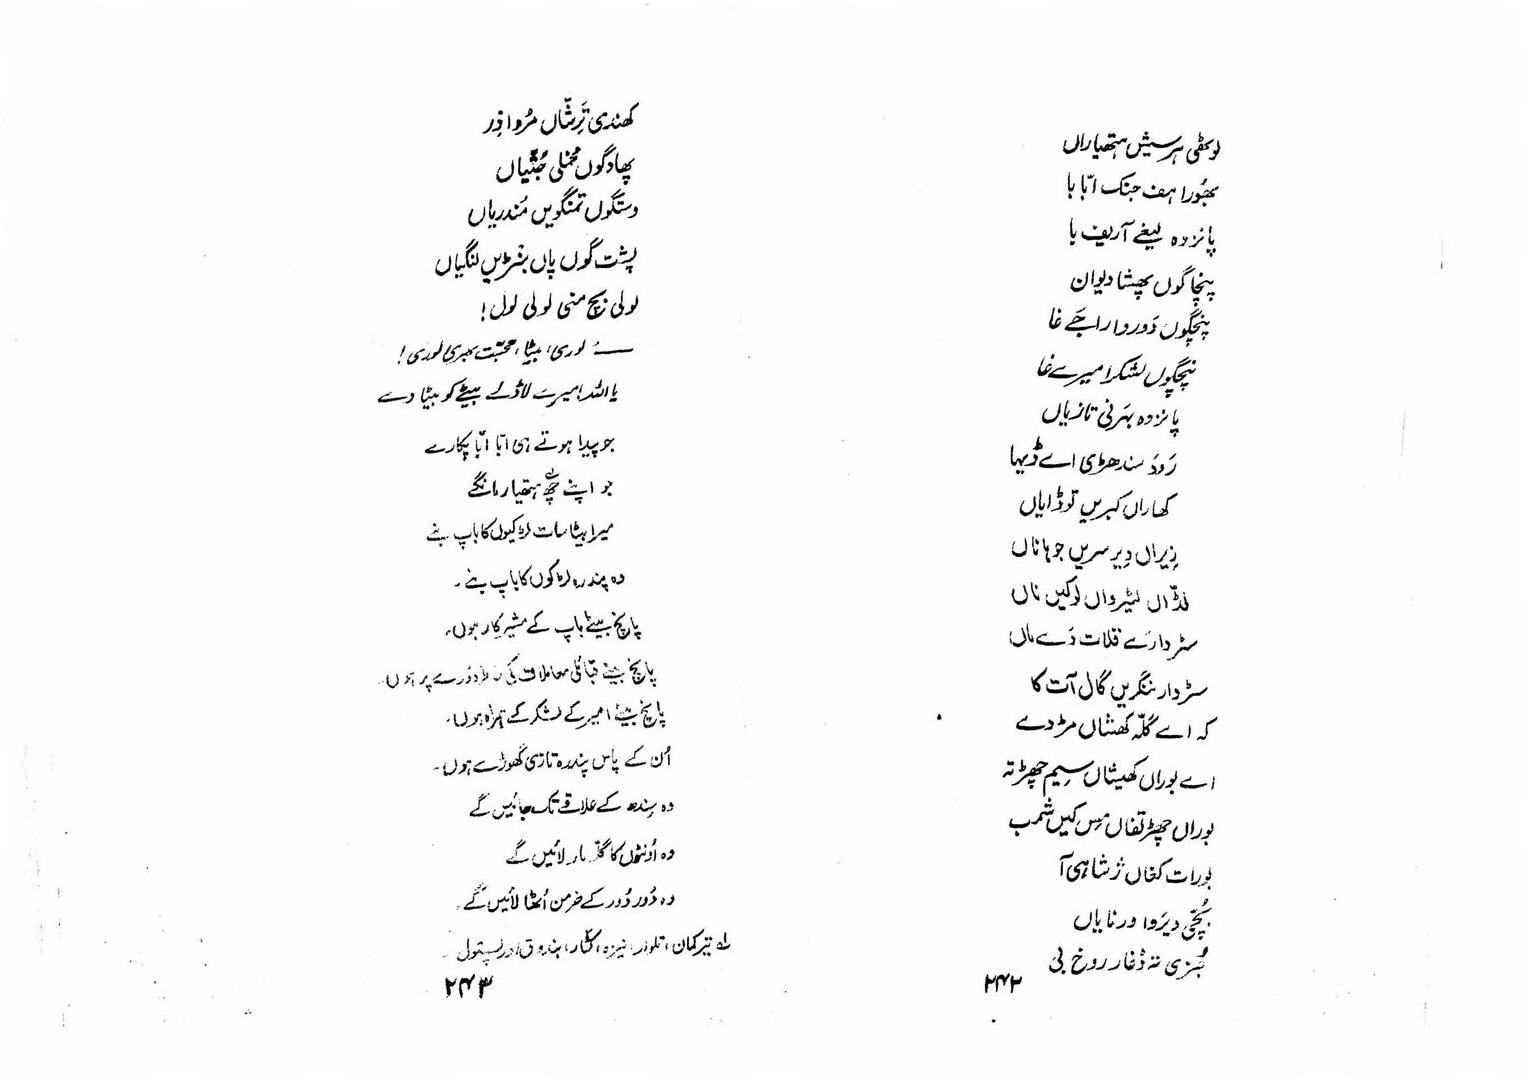 لوٹفی ہر سیش ہتھیاراں
بھورا ہف جنک ابّا با
پانزدہ لیغے آریف با
پنچا گوں پھثا دیوان
پنچگوں دَور و اراجَے غا
پنچگوں لشکرا میرے غا
پانزدہ بہرنی تازیاں
رَودَ سندھڑی اے ڈیہا
کھاراں کبریں توڈایاں
زیراں دیر سریں جوہاناں
لڈّاں لیڑواں لوکیں ناں
سڑدارے قلات دَے ماں
سڑدار ننگریں گال آت کا
کہ اے گلّہ کھثاں مڑدے
اے بوراں کھیثاں سیم چھڑتہ
بوراں چھڑتغاں مس کیں شمب
بورات کغاں ژ شاہی آ
بُچّی دیرَوا ورنایاں
جُزی نہ ڈغار روخ بی
۲۴۲
کھندی تَرشّاں مڑوا ذِر
پھادگوں مخملی جُتّیاں
دستگوں تمنگویں مُندریاں
پشت گوں پاں بغڑیں لنگیاں
لولی بچ منی لولی لول!
— لوری، بیٹا، محبّت بھری لوری!
یا اللہ! میرے لاڈلے بیٹے کو بیٹا دے
جو پیدا ہوتے ہی ابّا ابّا پکارے
جو اپنے چھے ہتھیار مانگے
میرا بیٹا سات لڑکیوں کا باپ بنے
وہ پندرہ لڑکوں کا باپ بنے ۔
پانچ بیٹے باپ کے مشیر کار ہوں۔
پانچ بیٹے قبائلی معاملات کی خاطر دورے پر ہوں۔
پانچ بیٹے امیر کے لشکر کے ہمراہ ہوں۔
اُن کے پاس پندرہ تازی گھوڑے ہوں۔
وہ سِندھ کے علاقے تک جائیں گے
وہ اُونٹوں کا گلّہ مار لائیں گے
وہ دُور دُور کے خرمن اُٹھا لائیں گے۔
لہ تیر کمان، تلوار، نیزہ، کٹار، بندوق اور پستول ۔
۲۴۳